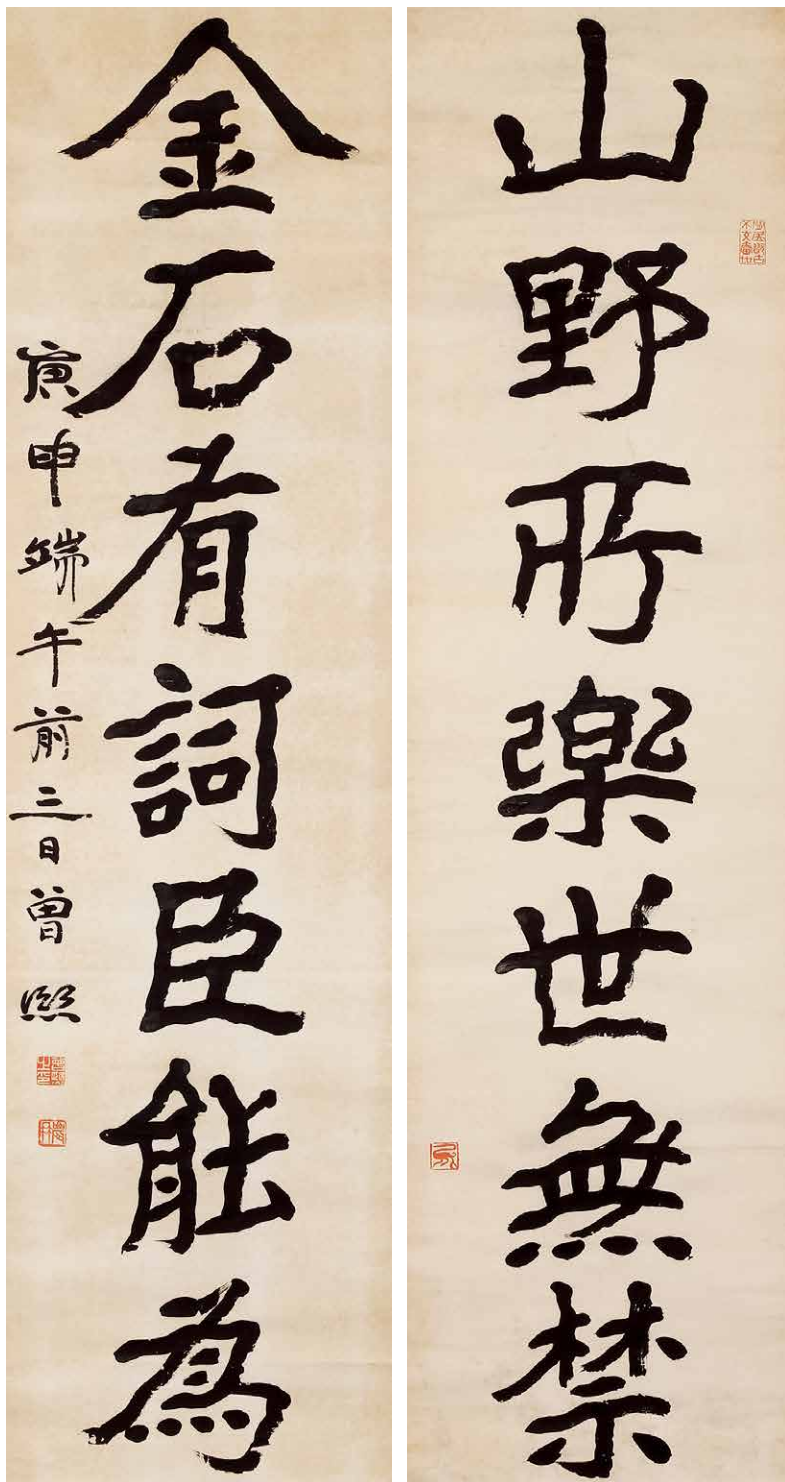 山野所樂世無禁
金石有詞臣能為
庚申端午前三日曾熙